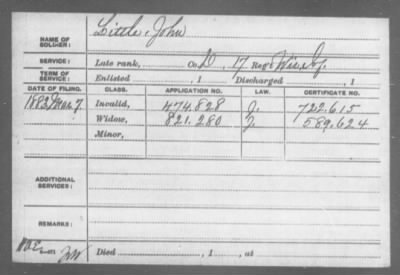 NAME OF SOLDIER: Little, John
SERVICE: Late rank, Co. D, 17 Reg't Wis. Inf.
TERM OF SERVICE: Enlisted , 1 Discharged , 1
DATE OF FILING. CLASS. APPLICATION NO. LAW. CERTIFICATE NO.
1883, Mar. 7 Invalid, 474.828 J. 722.615
Widow, 821.280 J. 589.624
Minor,
ADDITIONAL SERVICES:
REMARKS:
Died , 1 , at